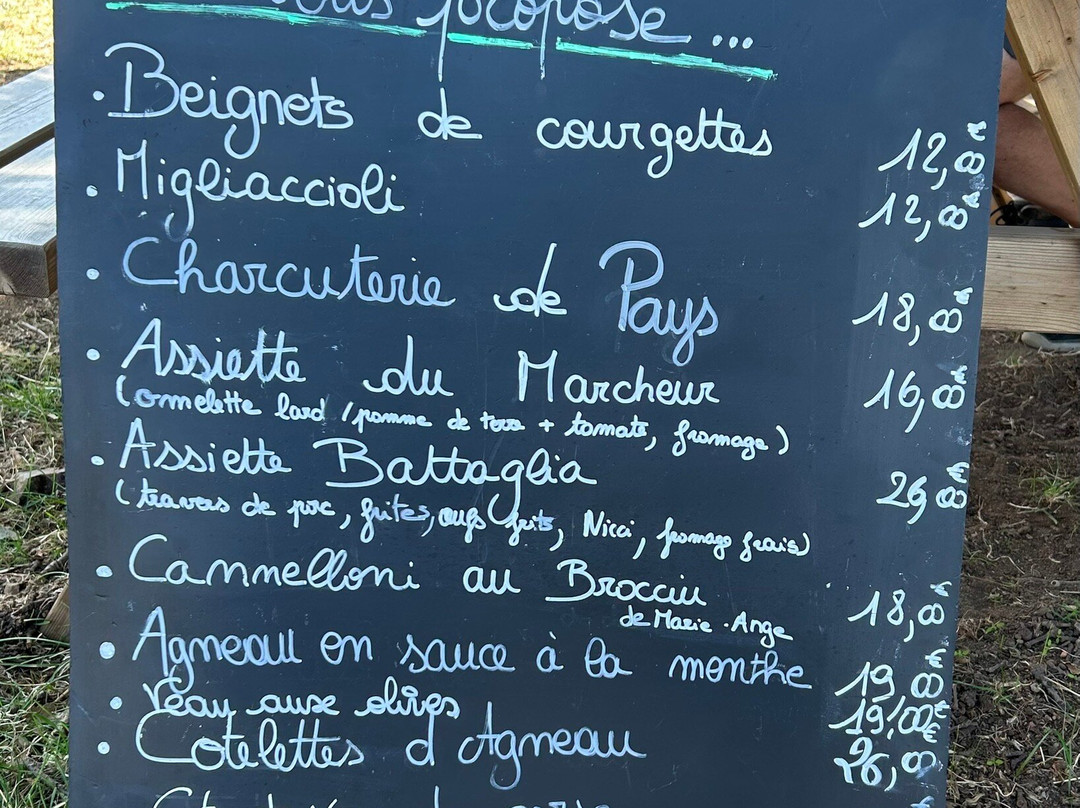 vous propose ...
• Beignets de courgettes 12,00€
• Migliaccioli 12,00€
• Charcuterie de Pays 18,00€
• Assiette du Marcheur 16,00€
(omelette lard / pomme de terre + tomate, fromage)
• Assiette Battaglia 26,00€
(travers de porc, frites, œufs frits, Nicci, fromage frais)
• Cannelloni au Brocciu 18,00€
de Marie-Ange
• Agneau en sauce à la menthe 19,00€
• Veau aux olives 19,00€
• Cotelettes d'Agneau 26,00€